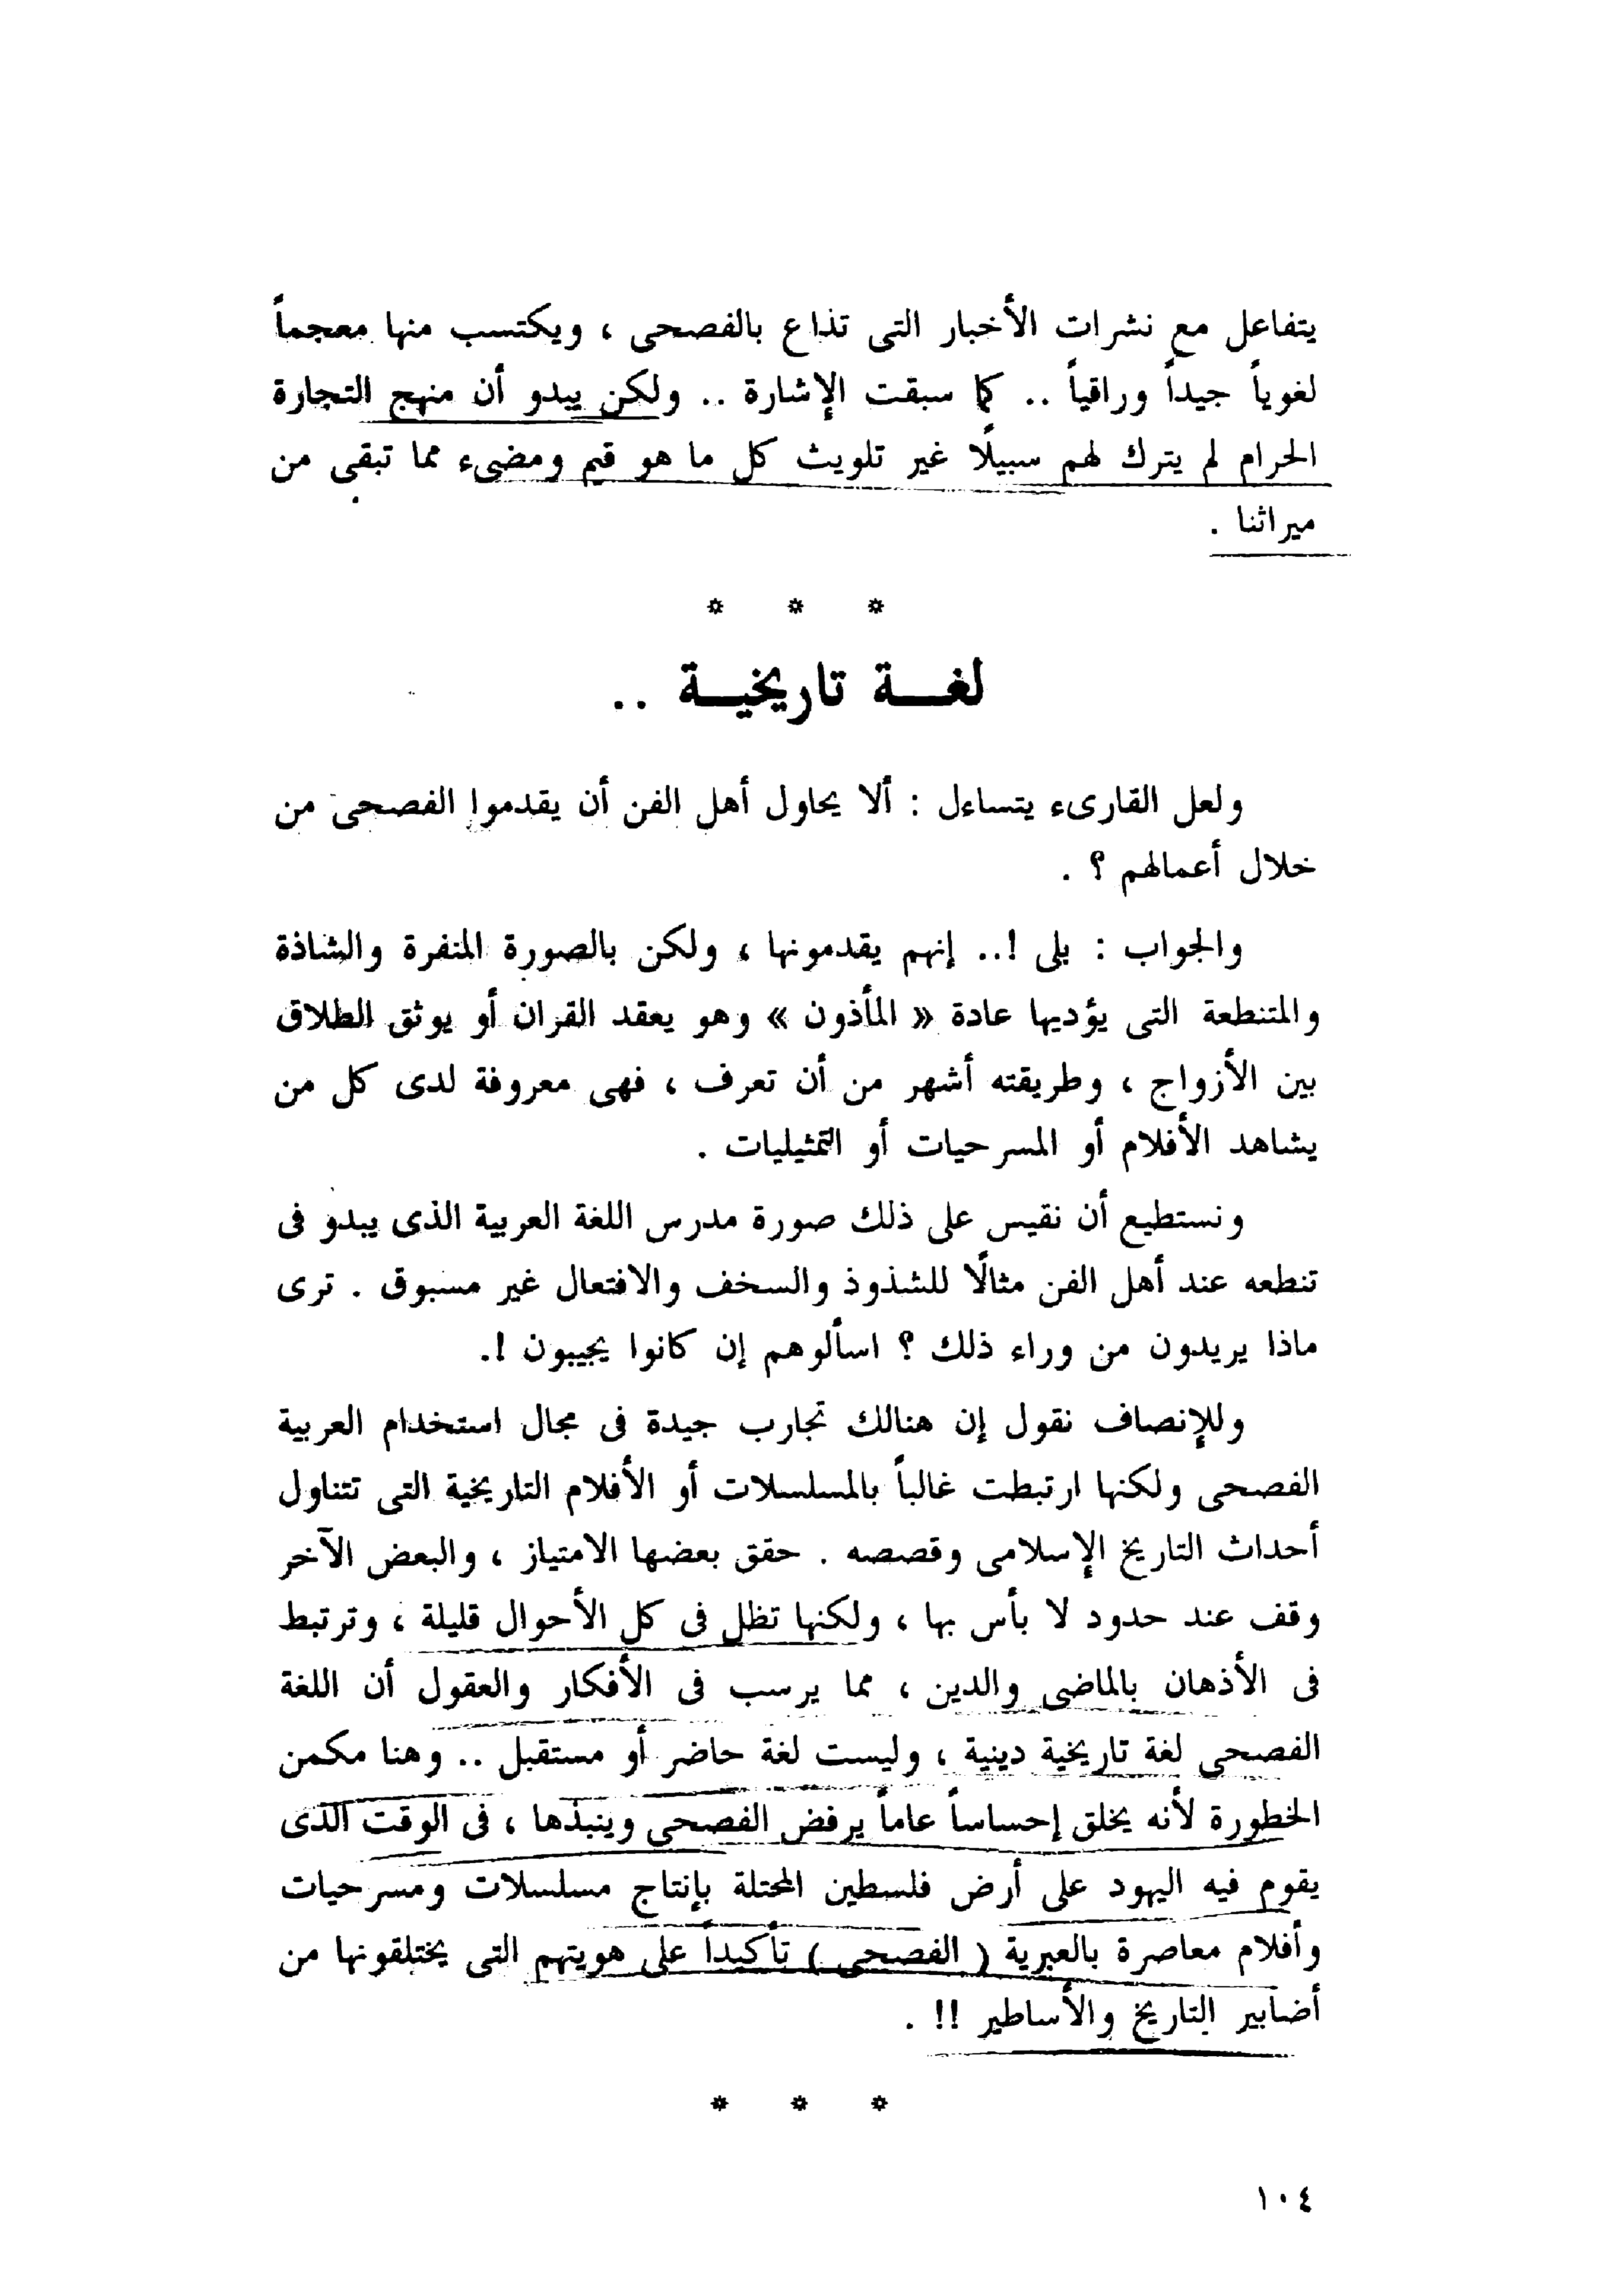 يتفاعل مع نشرات الأخبار التى تذاع بالفصحى ، ويكتسب منها معجماً
لغوياً جيداً وراقياً .. كما سبقت الإشارة .. ولكن يبدو أن منهج التجارة
الحرام لم يترك لهم سبيلًا غير تلويث كل ما هو قيم ومضىء مما تبقى من
ميراثنا .
* * *
لغـــة تاريخيـــة ..
ولعل القارىء يتساءل : ألا يحاول أهل الفن أن يقدموا الفصحى من
خلال أعمالهم ؟ .
والجواب : بلى !.. إنهم يقدمونها ، ولكن بالصورة المنفرة والشاذة
والمتنطعة التى يؤديها عادة « المأذون » وهو يعقد القران أو يوثق الطلاق
بين الأزواج ، وطريقته أشهر من أن تعرف ، فهى معروفة لدى كل من
يشاهد الأفلام أو المسرحيات أو التمثيليات .
ونستطيع أن نقيس على ذلك صورة مدرس اللغة العربية الذى يبدو فى
تنطعه عند أهل الفن مثالًا للشذوذ والسخف والافتعال غير مسبوق . ترى
ماذا يريدون من وراء ذلك ؟ اسألوهم إن كانوا يجيبون !.
وللإنصاف نقول إن هنالك تجارب جيدة فى مجال استخدام العربية
الفصحى ولكنها ارتبطت غالباً بالمسلسلات أو الأفلام التاريخية التى تتناول
أحداث التاريخ الإسلامى وقصصه . حقق بعضها الامتياز ، والبعض الآخر
وقف عند حدود لا بأس بها ، ولكنها تظل فى كل الأحوال قليلة ، وترتبط
فى الأذهان بالماضى والدين ، مما يرسب فى الأفكار والعقول أن اللغة
الفصحى لغة تاريخية دينية ، وليست لغة حاضر أو مستقبل .. وهنا مكمن
الخطورة لأنه يخلق إحساساً عاماً يرفض الفصحى وينبذها ، فى الوقت الذى
يقوم فيه اليهود على أرض فلسطين المحتلة بإنتاج مسلسلات ومسرحيات
وأفلام معاصرة بالعبرية ( الفصحى ) تأكيداً على هويتهم التى يختلقونها من
أضابير التاريخ والأساطير !! .
* * *
١٠٤